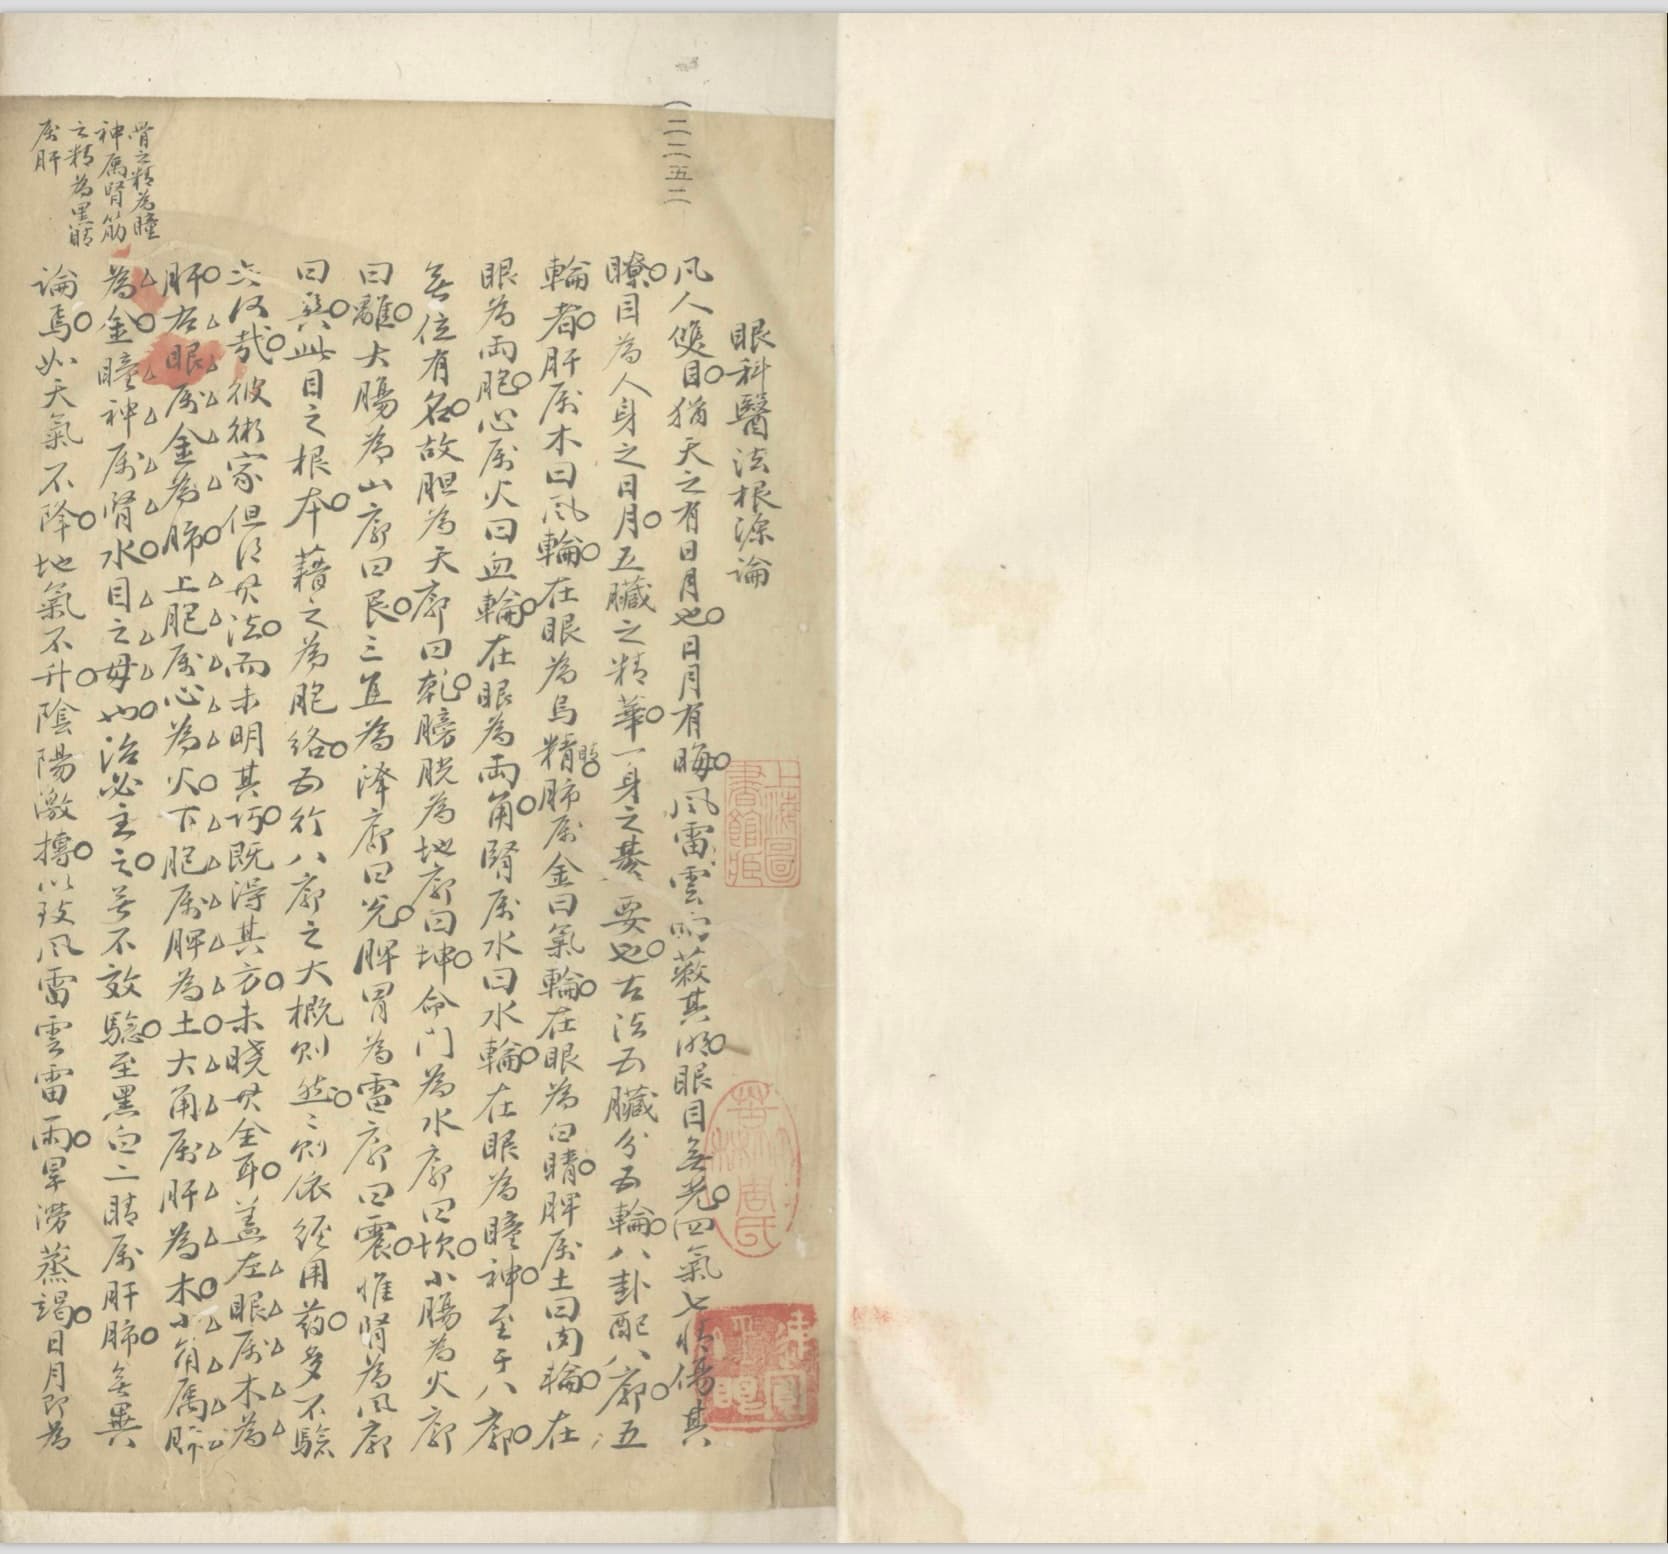 (二二五二
眼科醫法根源論
凡人雙目猶天之有日月也日月有晦風雷雲雨蔽其明眼目無光四氣七情傷其
瞭目為人身之日月五臟之精華一身之綦要也古法五臟分五輪八卦配八廓五
輪者肝属木曰風輪在眼為烏睛肺属金曰氣輪在眼為白睛脾属土曰肉輪在
眼為両胞心属火曰血輪在眼為両角腎属水曰水輪在眼為瞳神至于八廓
無位有名故胆為天廓曰乾膀胱為地廓曰坤命门為水廓曰坎小腸為火廓
曰離大腸為山廓曰艮三焦為澤廓曰兌脾胃為雷廓曰震惟腎為風廓
曰巽此目之根本藉之為胞络五行八廓之大概则然之则依經用药多不驗
次何哉彼術家但得其法而未明其巧既得其方未晓其全耳盖左眼属木為
肝右眼属金為肺上胞属心為火下胞属脾為土大角属肝為木小角属肺
為金瞳神属腎水目之毋也治必主之無不效驗至黑白二睛属肝肺無異
論焉如天氣不降地氣不升陰陽激摶以致風雷雲雷雨旱澇蒸竭日月即為
骨之精為瞳
神属腎筋
之精為黑睛
属肝
上海圖
書館藏